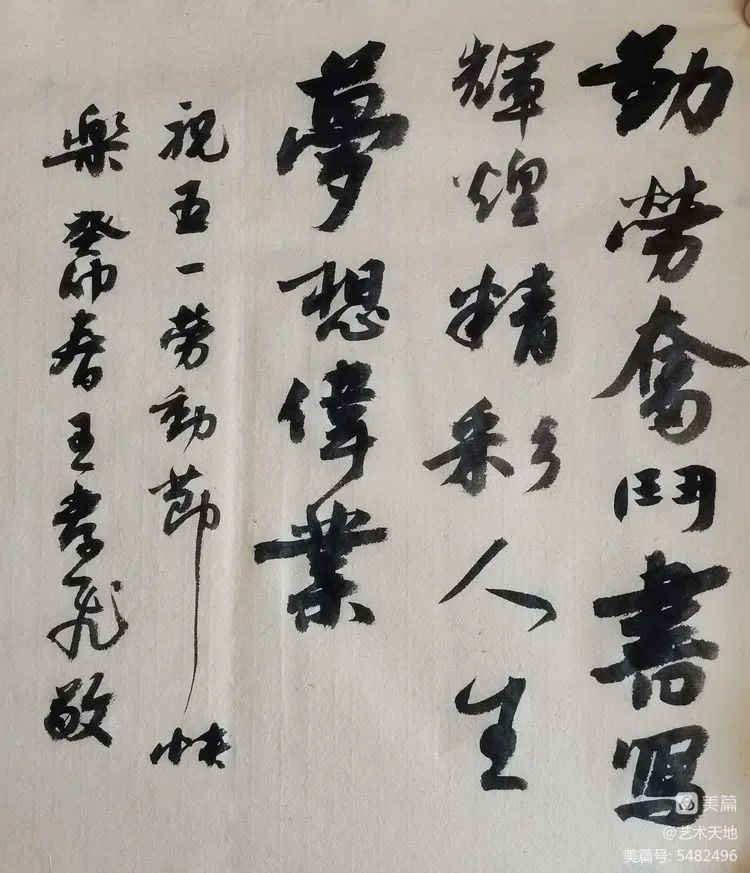 勤勞奮鬥書寫
輝煌精彩人生
夢想偉業
祝五一勞動節快
樂癸卯春王書飛敬
美篇
@艺术天地
美篇号: 5482496